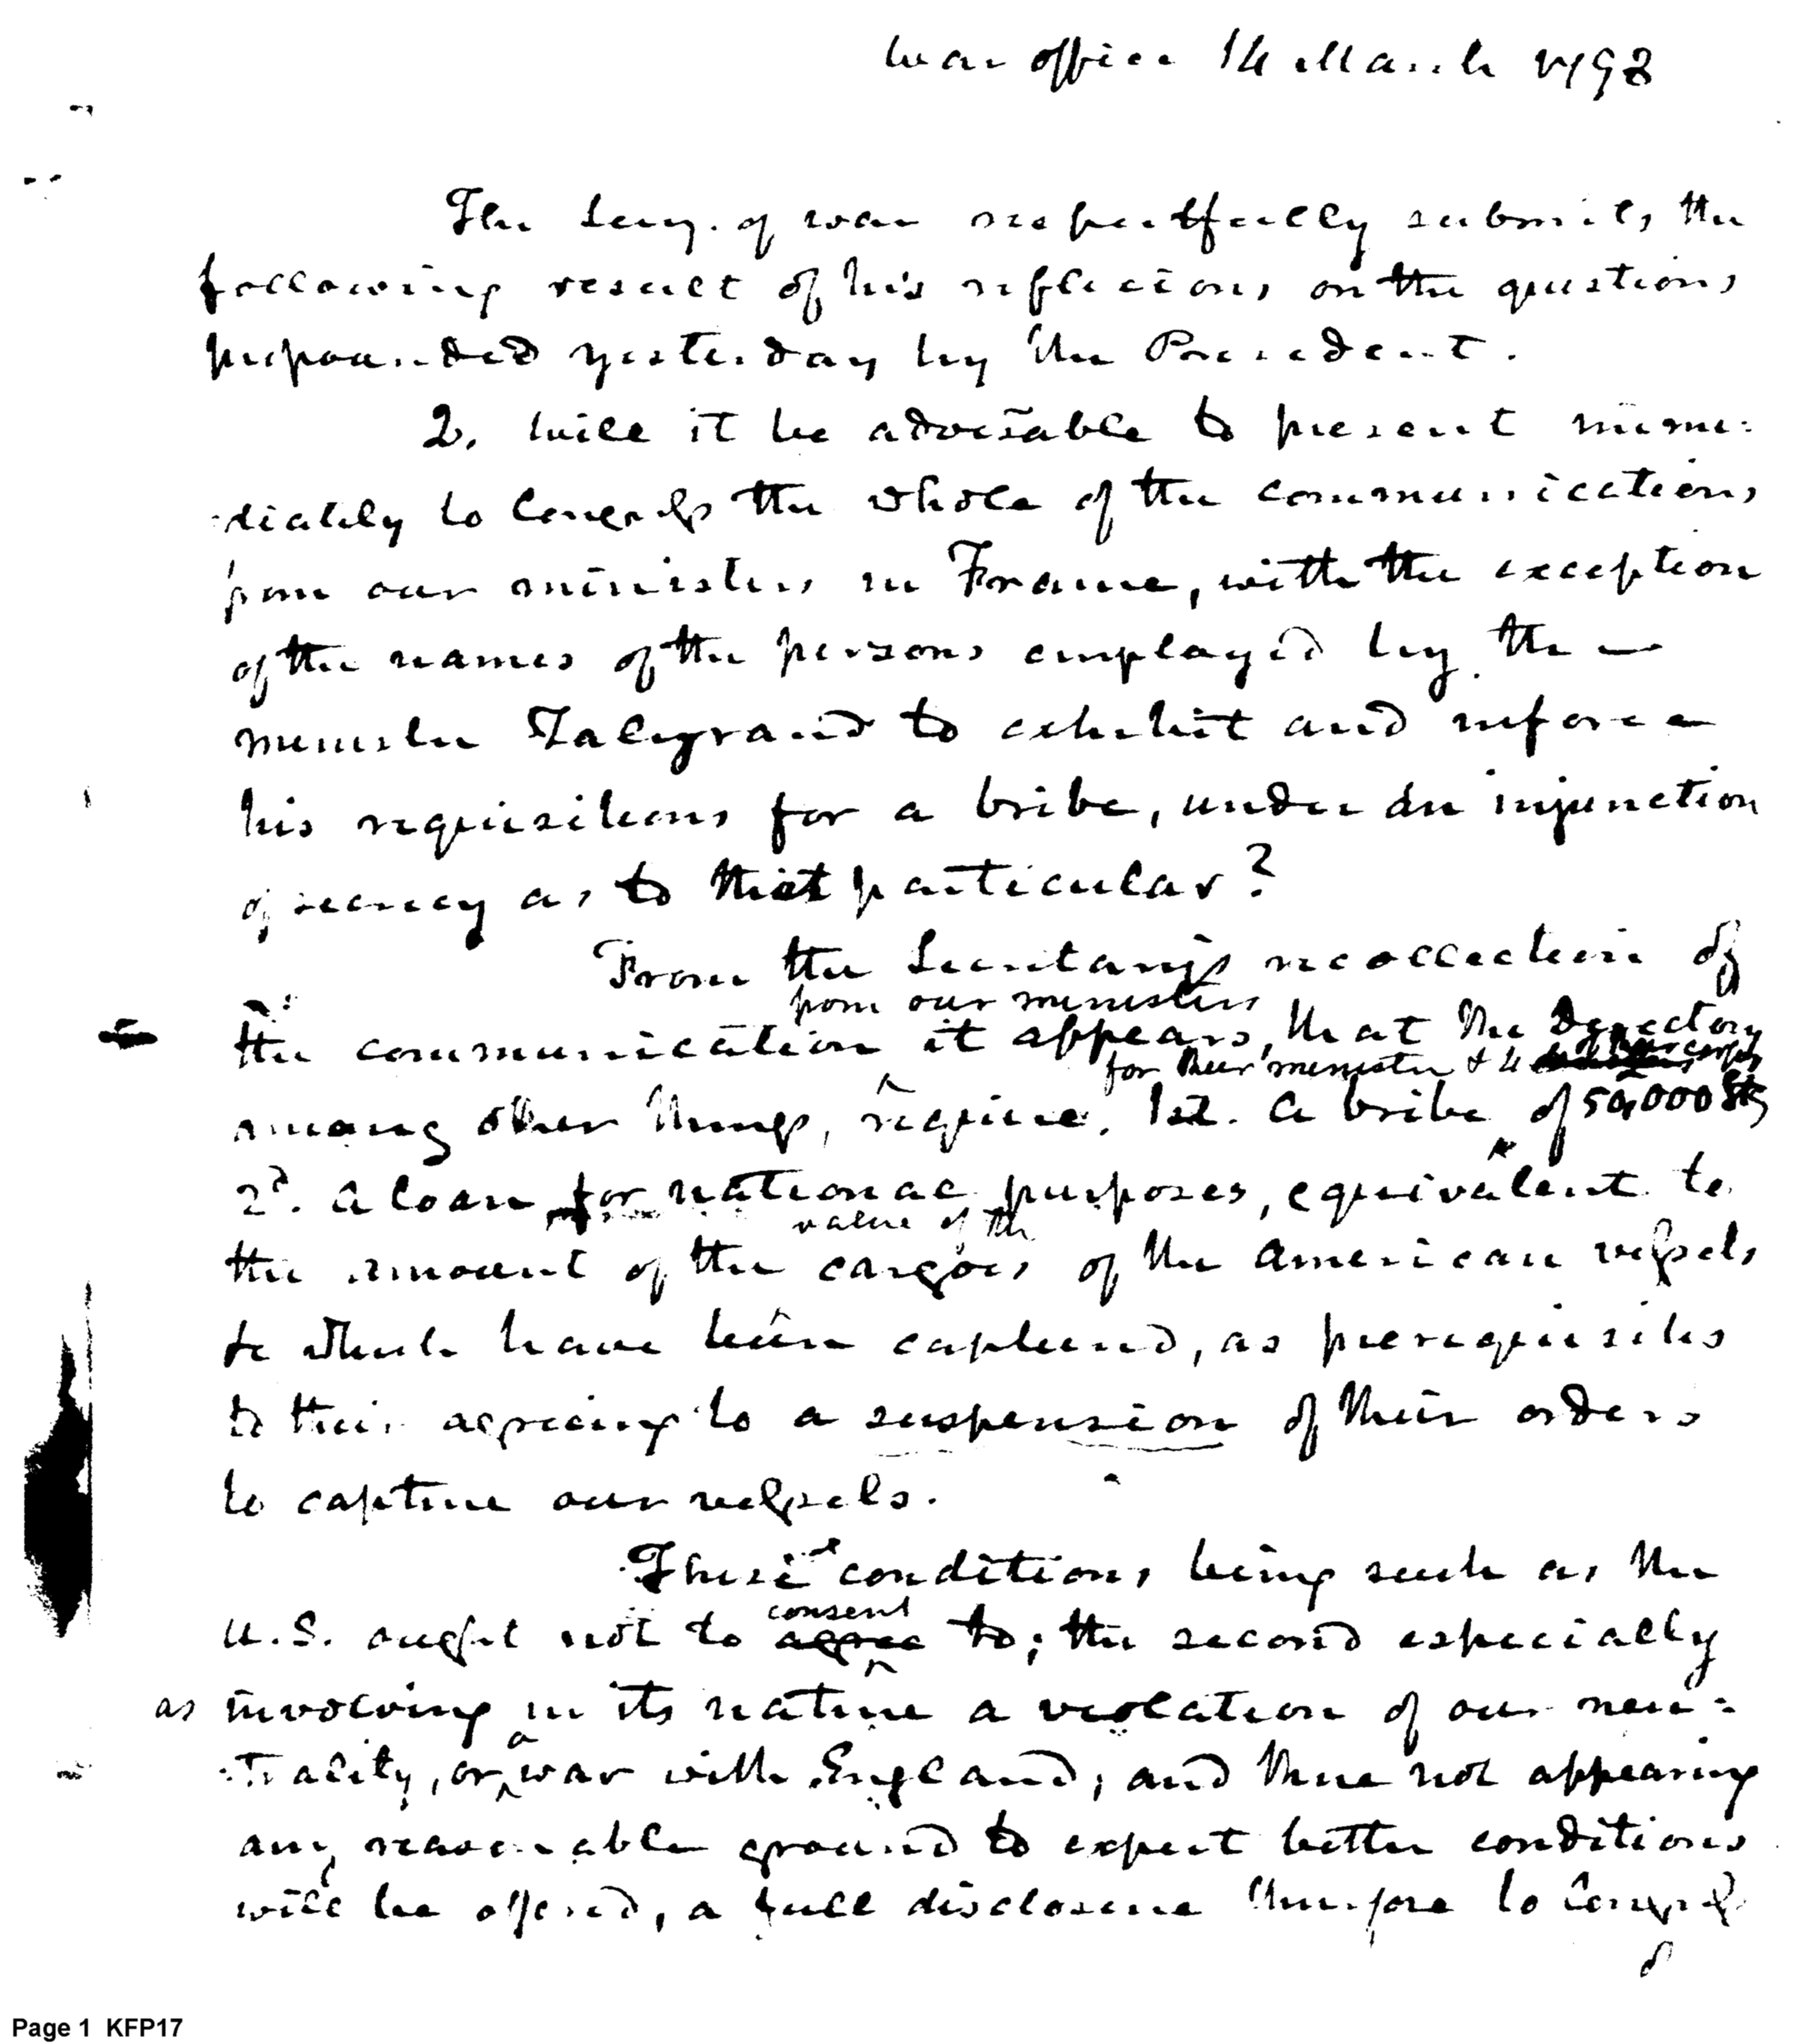 War office 14 March 1798
The Secy. of war respectfully submits the
following result of his reflections on the questions
propounded yesterday by the President.
2. Will it be adviseable to present imme:
:diately to Congress the whole of the communications
from our ministers in France, with the exception
of the names of the persons employed by the
minister Talleyrand to exhibit and inforce
his requisitions for a bribe, under an injunction
of secrecy as to that particular?
From the Secretary's recollection of
from our ministers
the communication it appears, that the Directory
for their minister & 4 of their corps
among other things, require. 1st. A bribe of 50,000 Stg
2d. A loan for national purposes, equivalent to
value of the
the amount of the cargoes of the American vessels
to which have been captured, as prerequisites
to their agreeing to a suspension of their orders
to capture our vessels.
These conditions being such as the
consent
U.S. ought not to agree to; the second especially
as involving in its nature a violation of our neu:
a
:trality, or war with England, and there not appearing
any reasonable ground to expect better conditions
will be offered, a full disclosure therefore to Congress
Page 1 KFP17